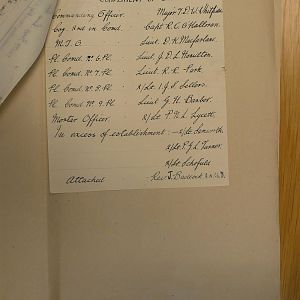 Commanding Officer. Major T. D. W. Whitfield
Coy. 2nd in Comd. Capt. R. C. O'Halloran
M.T.O. Lieut. D. K. Macfarlane
Pl. Comd. No 6. Pl. Lieut. J. D. L. Hamilton
Pl. Comd. No 7. Pl. Lieut. R. R. Park
Pl. Comd. No 8. Pl. 2/Lt. J. G. J. Sellers
Pl. Comd. No 9. Pl. Lieut. G. H. Barber
Mortar Officer. 2/Lt. P. N. L. Lycett
In excess of establishment:- 2/Lt.
2/Lt. P. G. L. Turner
2/Lt. Schofield
Attached Rev. J.